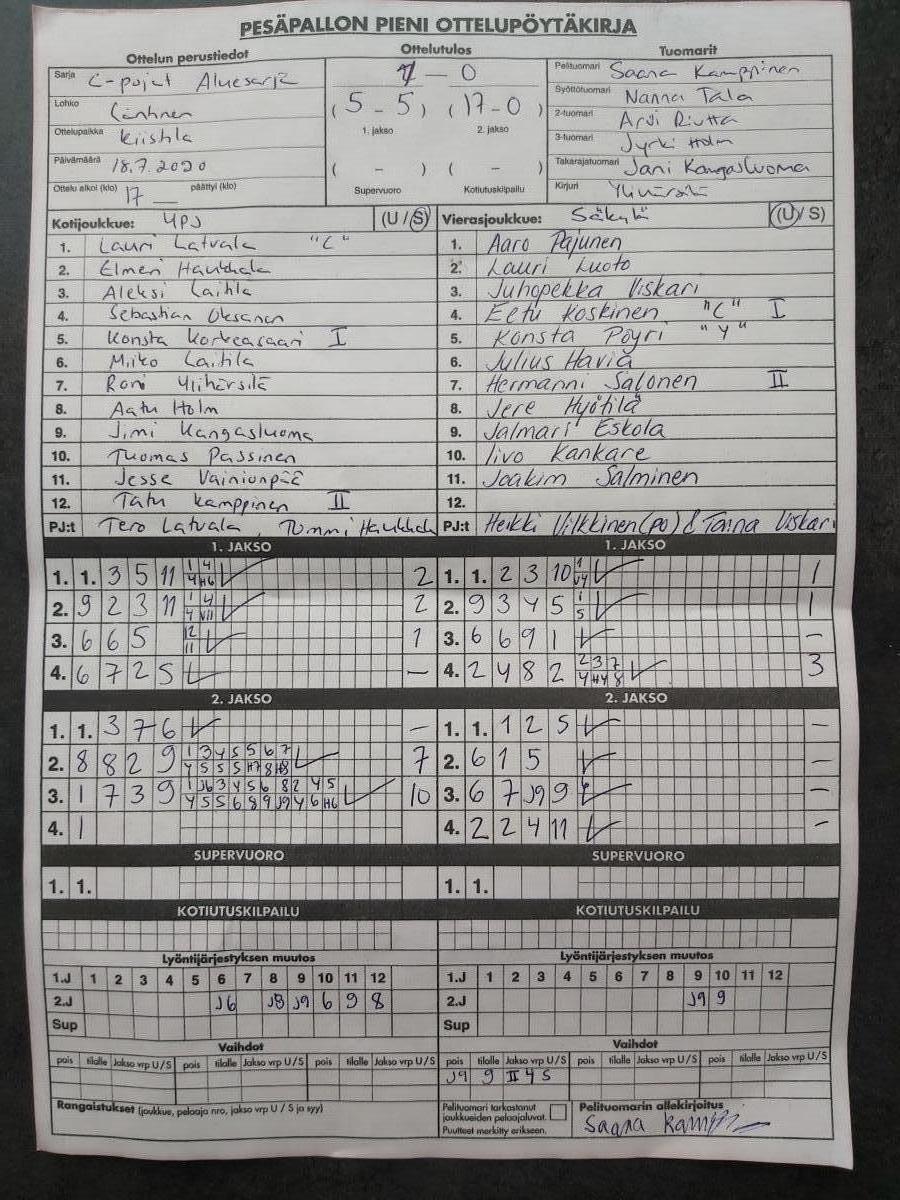 PESÄPALLON PIENI OTTELUPÖYTÄKIRJA
Ottelun perustiedot
Sarja C-pojat Aluesarja
Lohko Läntinen
Ottelupaikka Kiistila
Päivämäärä 18.7.2020
Ottelu alkoi (klo) 17 — päättyi (klo)
Ottelutulos
1 — 0
( 5 - 5 ) ( 17 - 0 )
1. jakso 2. jakso
( - ) ( - )
Supervuoro Kotiutuskilpailu
Tuomarit
Pelituomari Saana Kamppinen
Syöttötuomari Nanna Tala
2-tuomari Arvi Riutta
3-tuomari Jyrki Holm
Takarajatuomari Jani Kangasluoma
Kirjuri Ylihärsilä
Kotijoukkue: YPJ (U / S)
1. Lauri Latvala "C"
2. Elmeri Haukkala
3. Aleksi Laihla
4. Sebastian Oksanen
5. Konsta Korkeasaari I
6. Miko Laitila
7. Roni Ylihärsilä
8. Aatu Holm
9. Jimi Kangasluoma
10. Tuomas Passinen
11. Jesse Vainionpää
12. Tatu Kamppinen II
PJ:t Tero Latvala, Tommi Haukkala
Vierasjoukkue: Säkylä (U / S)
1. Aaro Pajunen
2. Lauri Luoto
3. Juhopekka Viskari
4. Eetu Koskinen "C" I
5. Konsta Pöyri "Y"
6. Julius Haviä
7. Hermanni Salonen II
8. Jere Hyötilä
9. Jalmari Eskola
10. Iivo Kankare
11. Joakim Salminen
12.
PJ:t Heikki Vilkkinen (PO) & Taina Viskari
1. JAKSO
1. 1. 3 5 11 1 4 2
4 H6
2. 9 2 3 11 1 4 2
4 VII
3. 6 6 5 12 1
11
4. 6 7 2 5 —
1. JAKSO
1. 1. 2 3 10 1 1
V4
2. 9 3 4 5 1 1
5
3. 6 6 9 1 —
4. 2 4 8 2 2 3 7 3
4 H4 8
2. JAKSO
1. 1. 3 7 6 —
2. 8 8 2 9 1 3 4 5 5 6 7 7
4 5 5 5 H7 8 H8
3. 1 7 3 9 1 J6 3 4 5 6 8 2 4 5 10
4 5 5 6 8 9 J9 4 6 H6
4. 1
2. JAKSO
1. 1. 1 2 5 —
2. 6 1 5 —
3. 6 7 J9 9 —
4. 2 2 4 11 —
SUPERVUORO
1. 1.
SUPERVUORO
1. 1.
KOTIUTUSKILPAILU
KOTIUTUSKILPAILU
Lyöntijärjestyksen muutos
1.J 1 2 3 4 5 6 7 8 9 10 11 12
2.J J6 J8 J9 6 9 8
Sup
Lyöntijärjestyksen muutos
1.J 1 2 3 4 5 6 7 8 9 10 11 12
2.J J9 9
Sup
Vaihdot
pois tilalle Jakso vrp U/S pois tilalle Jakso vrp U/S pois tilalle Jakso vrp U/S
Vaihdot
pois tilalle Jakso vrp U/S pois tilalle Jakso vrp U/S pois tilalle Jakso vrp U/S
J9 9 II 4 S
Rangaistukset (joukkue, pelaaja nro, jakso vrp U / S ja syy)
Pelituomari tarkastanut
joukkueiden pelaajaluvat.
Puutteet merkitty erikseen.
Pelituomarin allekirjoitus
Saana